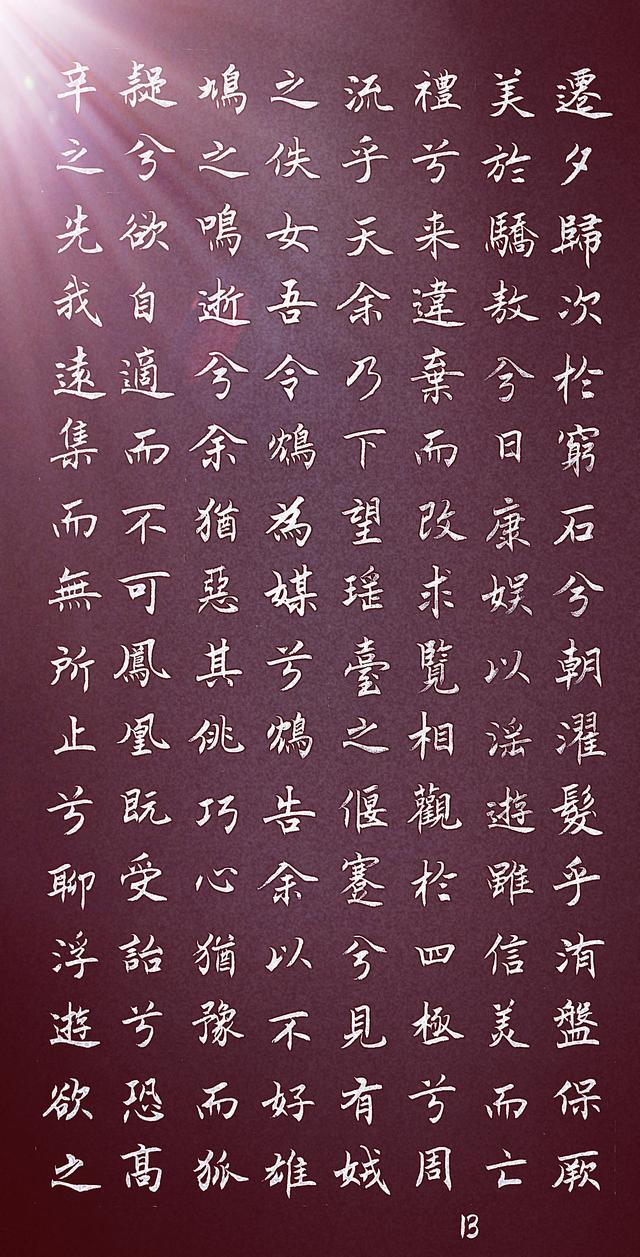 遷夕歸次於窮石兮朝濯髮乎洧盤保厥
美於驕敖兮日康娱以淫遊雖信美而亡
禮兮来違棄而改求覽相觀於四極兮周
流乎天余乃下望瑶臺之偃蹇兮見有娀
之佚女吾令鴆為媒兮鴆告余以不好雄
鳩之鳴逝兮余猶惡其佻巧心猶豫而狐
疑兮欲自適而不可鳳凰既受詒兮恐髙
辛之先我遠集而無所止兮聊浮遊欲之
13